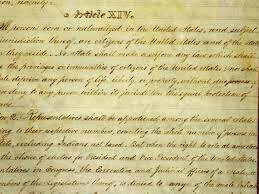 Article XIV.
persons born or naturalized in the United States, and subject
jurisdiction thereof, are citizens of the United States and of the State
they reside. No State shall make or enforce any law which shall
the privileges or immunities of citizens of the United States; nor shall
deprive any person of life, liberty, or property, without due process
deny to any person within its jurisdiction the equal protection of
Representatives shall be apportioned among the several States
to their respective numbers, counting the whole number of persons in
State, excluding Indians not taxed. But when the right to vote at any
the choice of electors for President and Vice President of the United
in Congress, the Executive and Judicial officers of a State, or
members of the Legislature thereof, is denied to any of the male